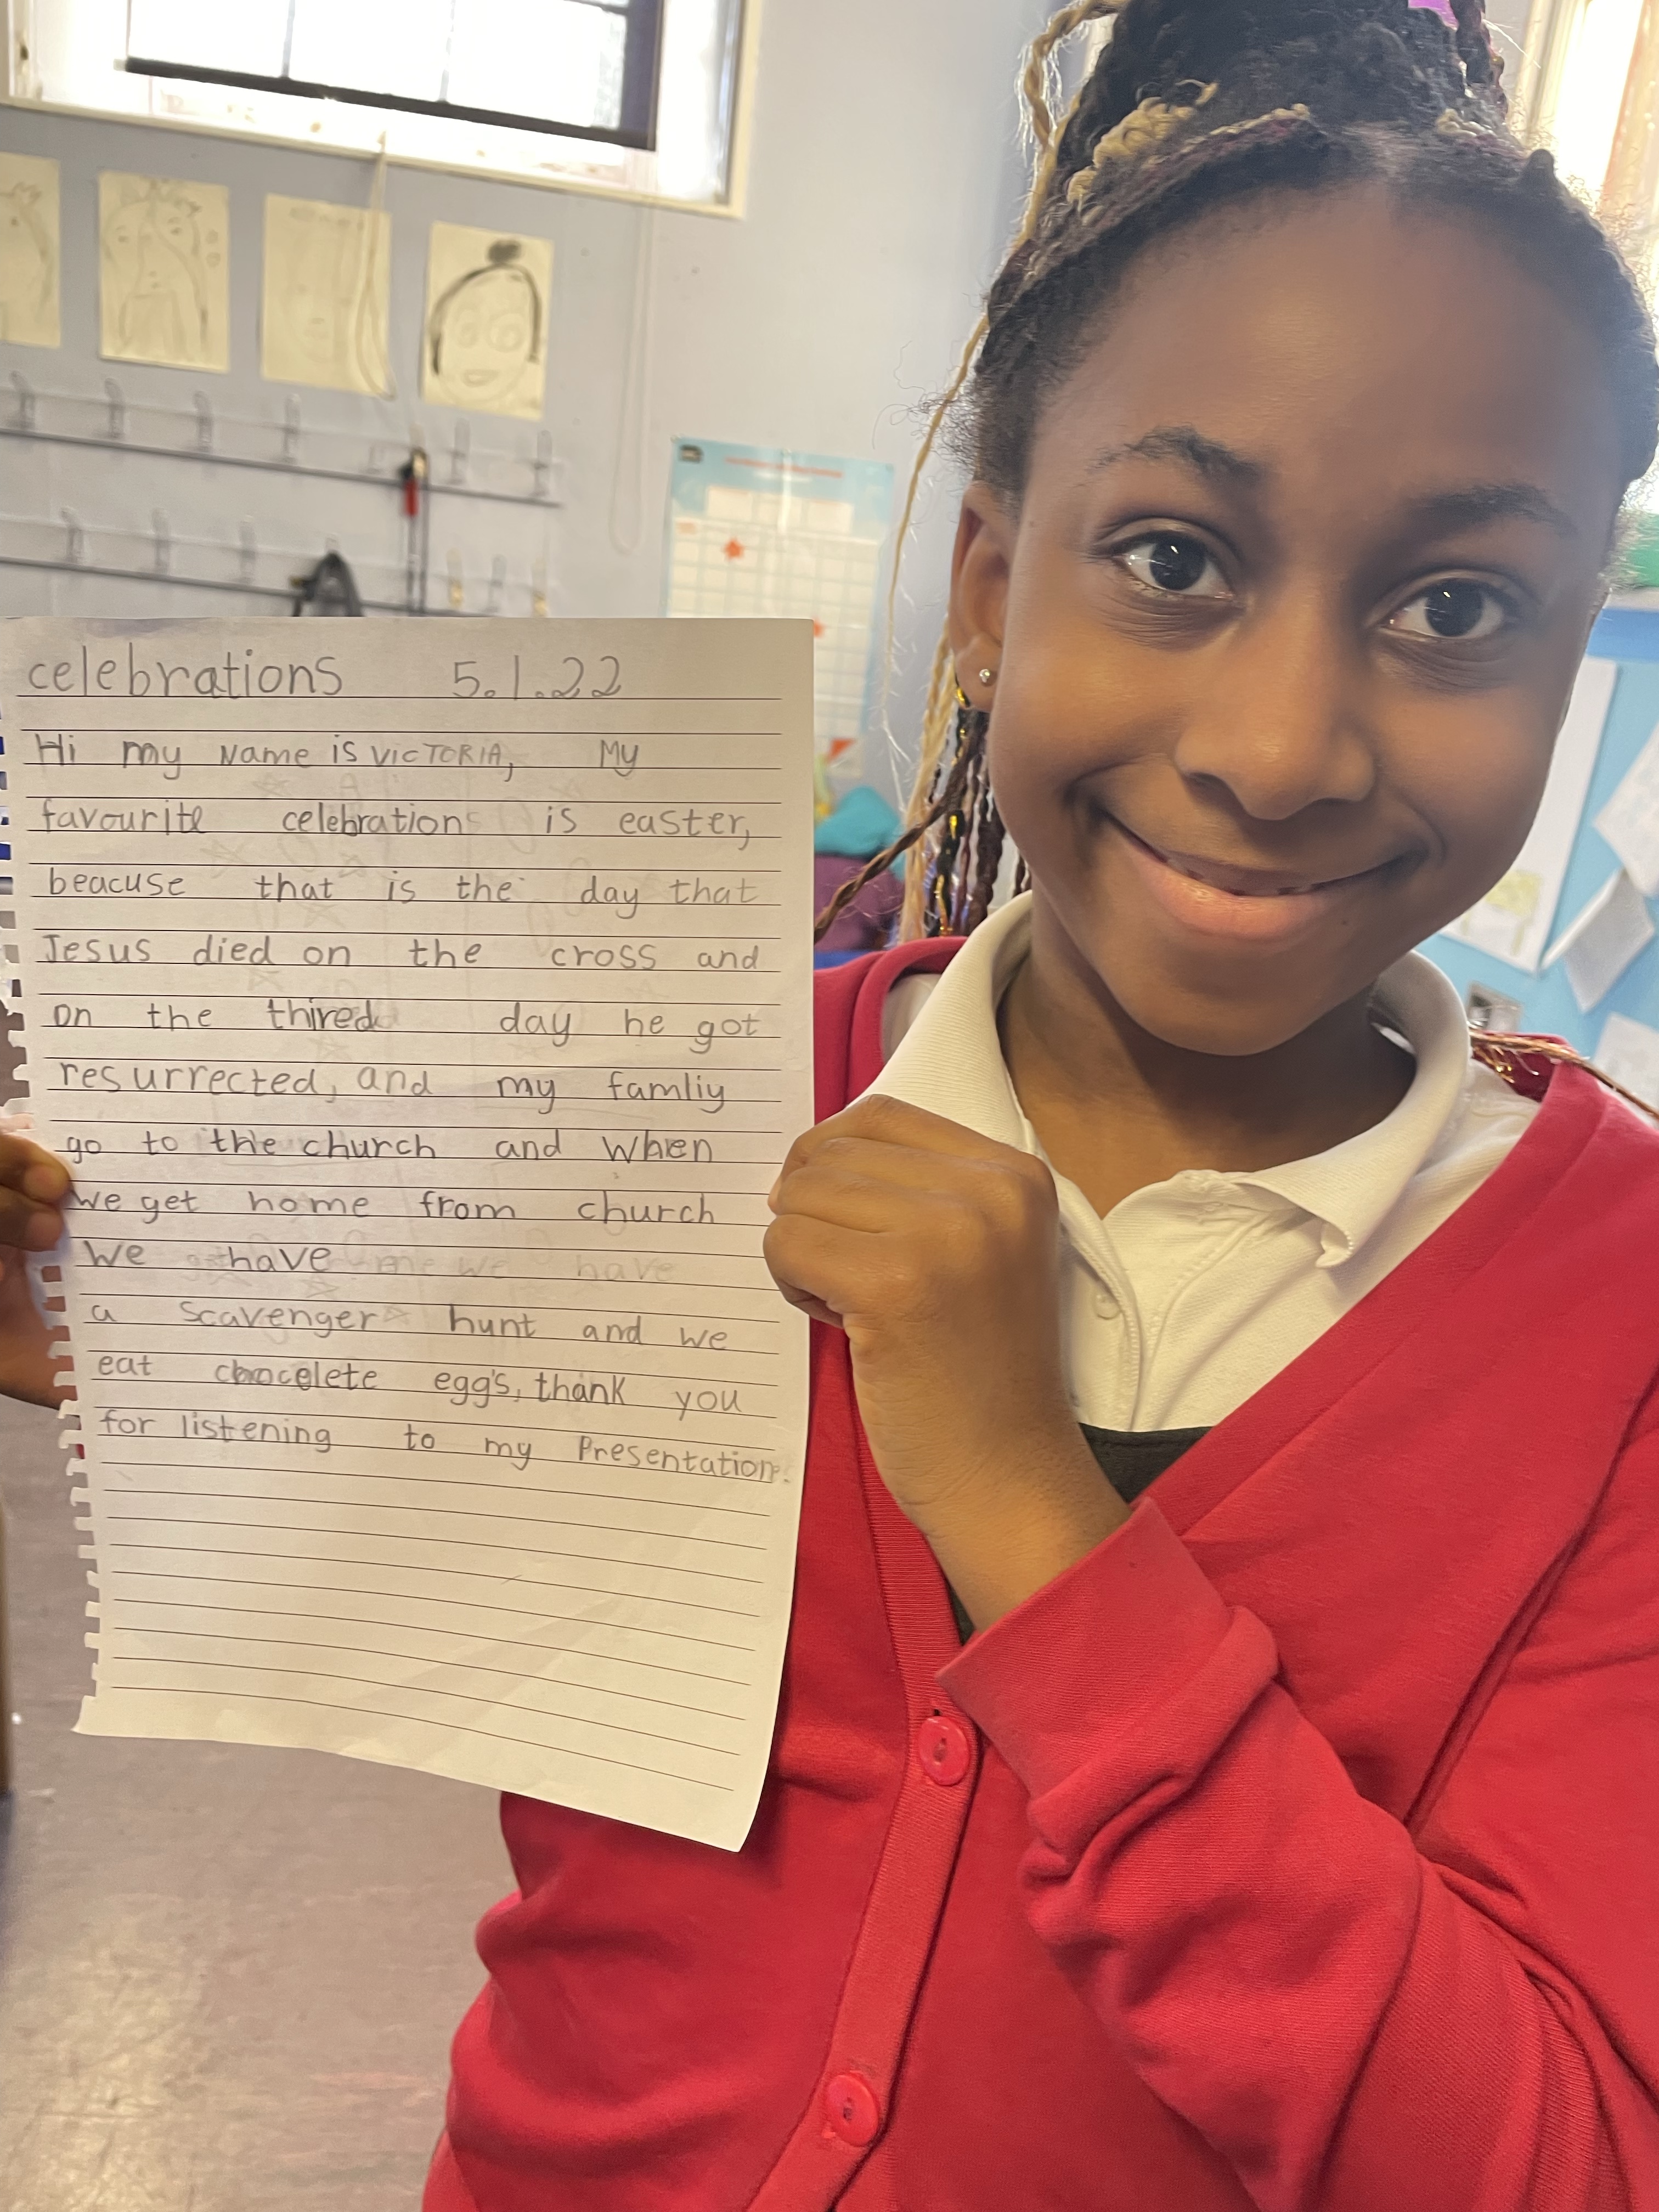 celebrations 5.1.22
Hi my Name is VICTORIA, My
favourite celebration is easter,
beacuse that is the day that
Jesus died on the cross and
on the thired day he got
resurrected, and my famliy
go to the church and when
we get home from church
We have
a scavenger hunt and we
eat chocelete egg's, thank you
for listening to my Presentation.